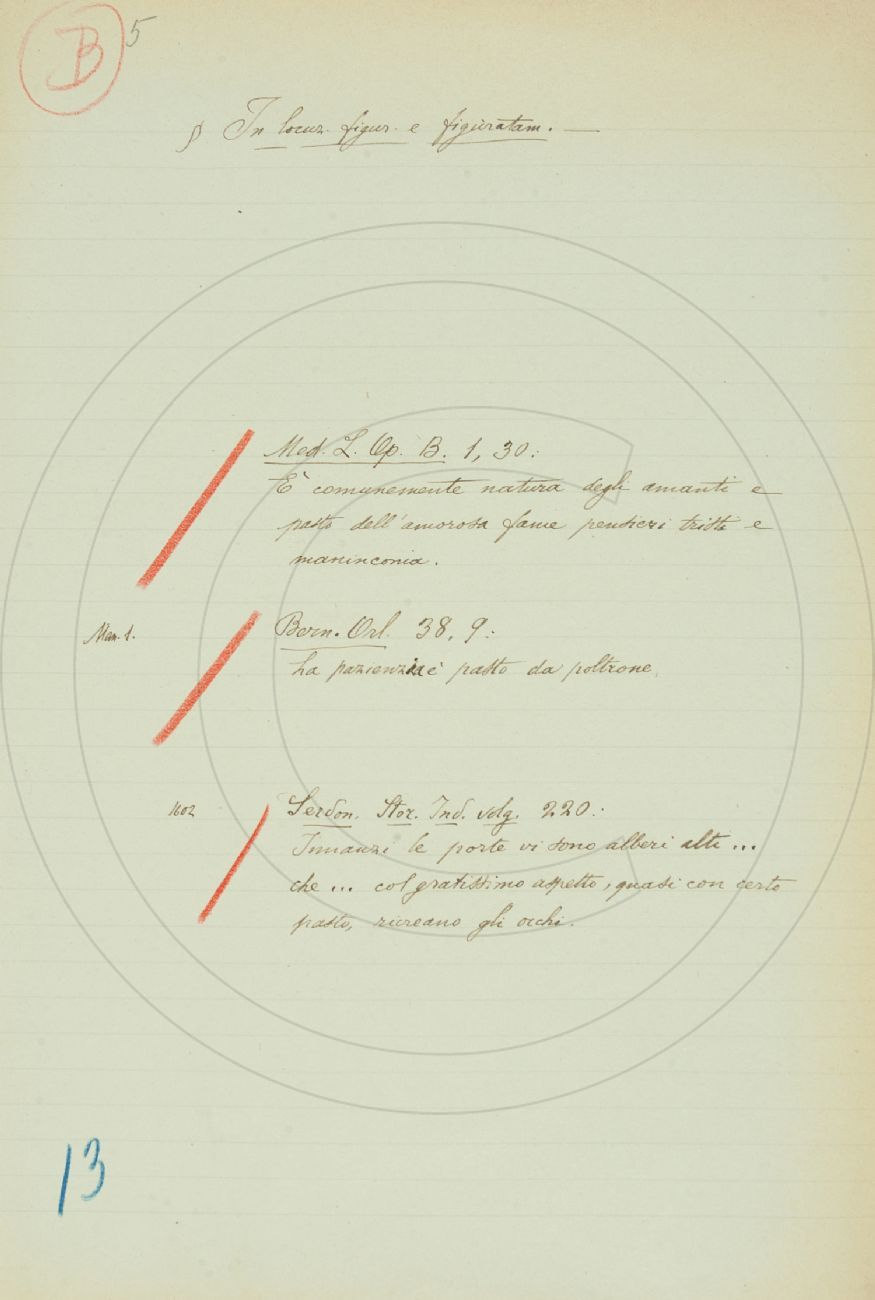 B 5
§ In locuz. figur. e figuratam. —
Med. L. Op. B. 1, 30:
È comunemente natura degli amanti e
pasto dell'amorosa fame pensieri tristi e
maninconia.
Man. 1.
Bern. Orl. 38, 9:
La pazienzia è pasto da poltrone.
1602
Serdon. Stor. Ind. volg. 220:
Innanzi le porte vi sono alberi alti ...
che ... col gratissimo aspetto, quasi con certo
pasto, ricreano gli occhi.
13